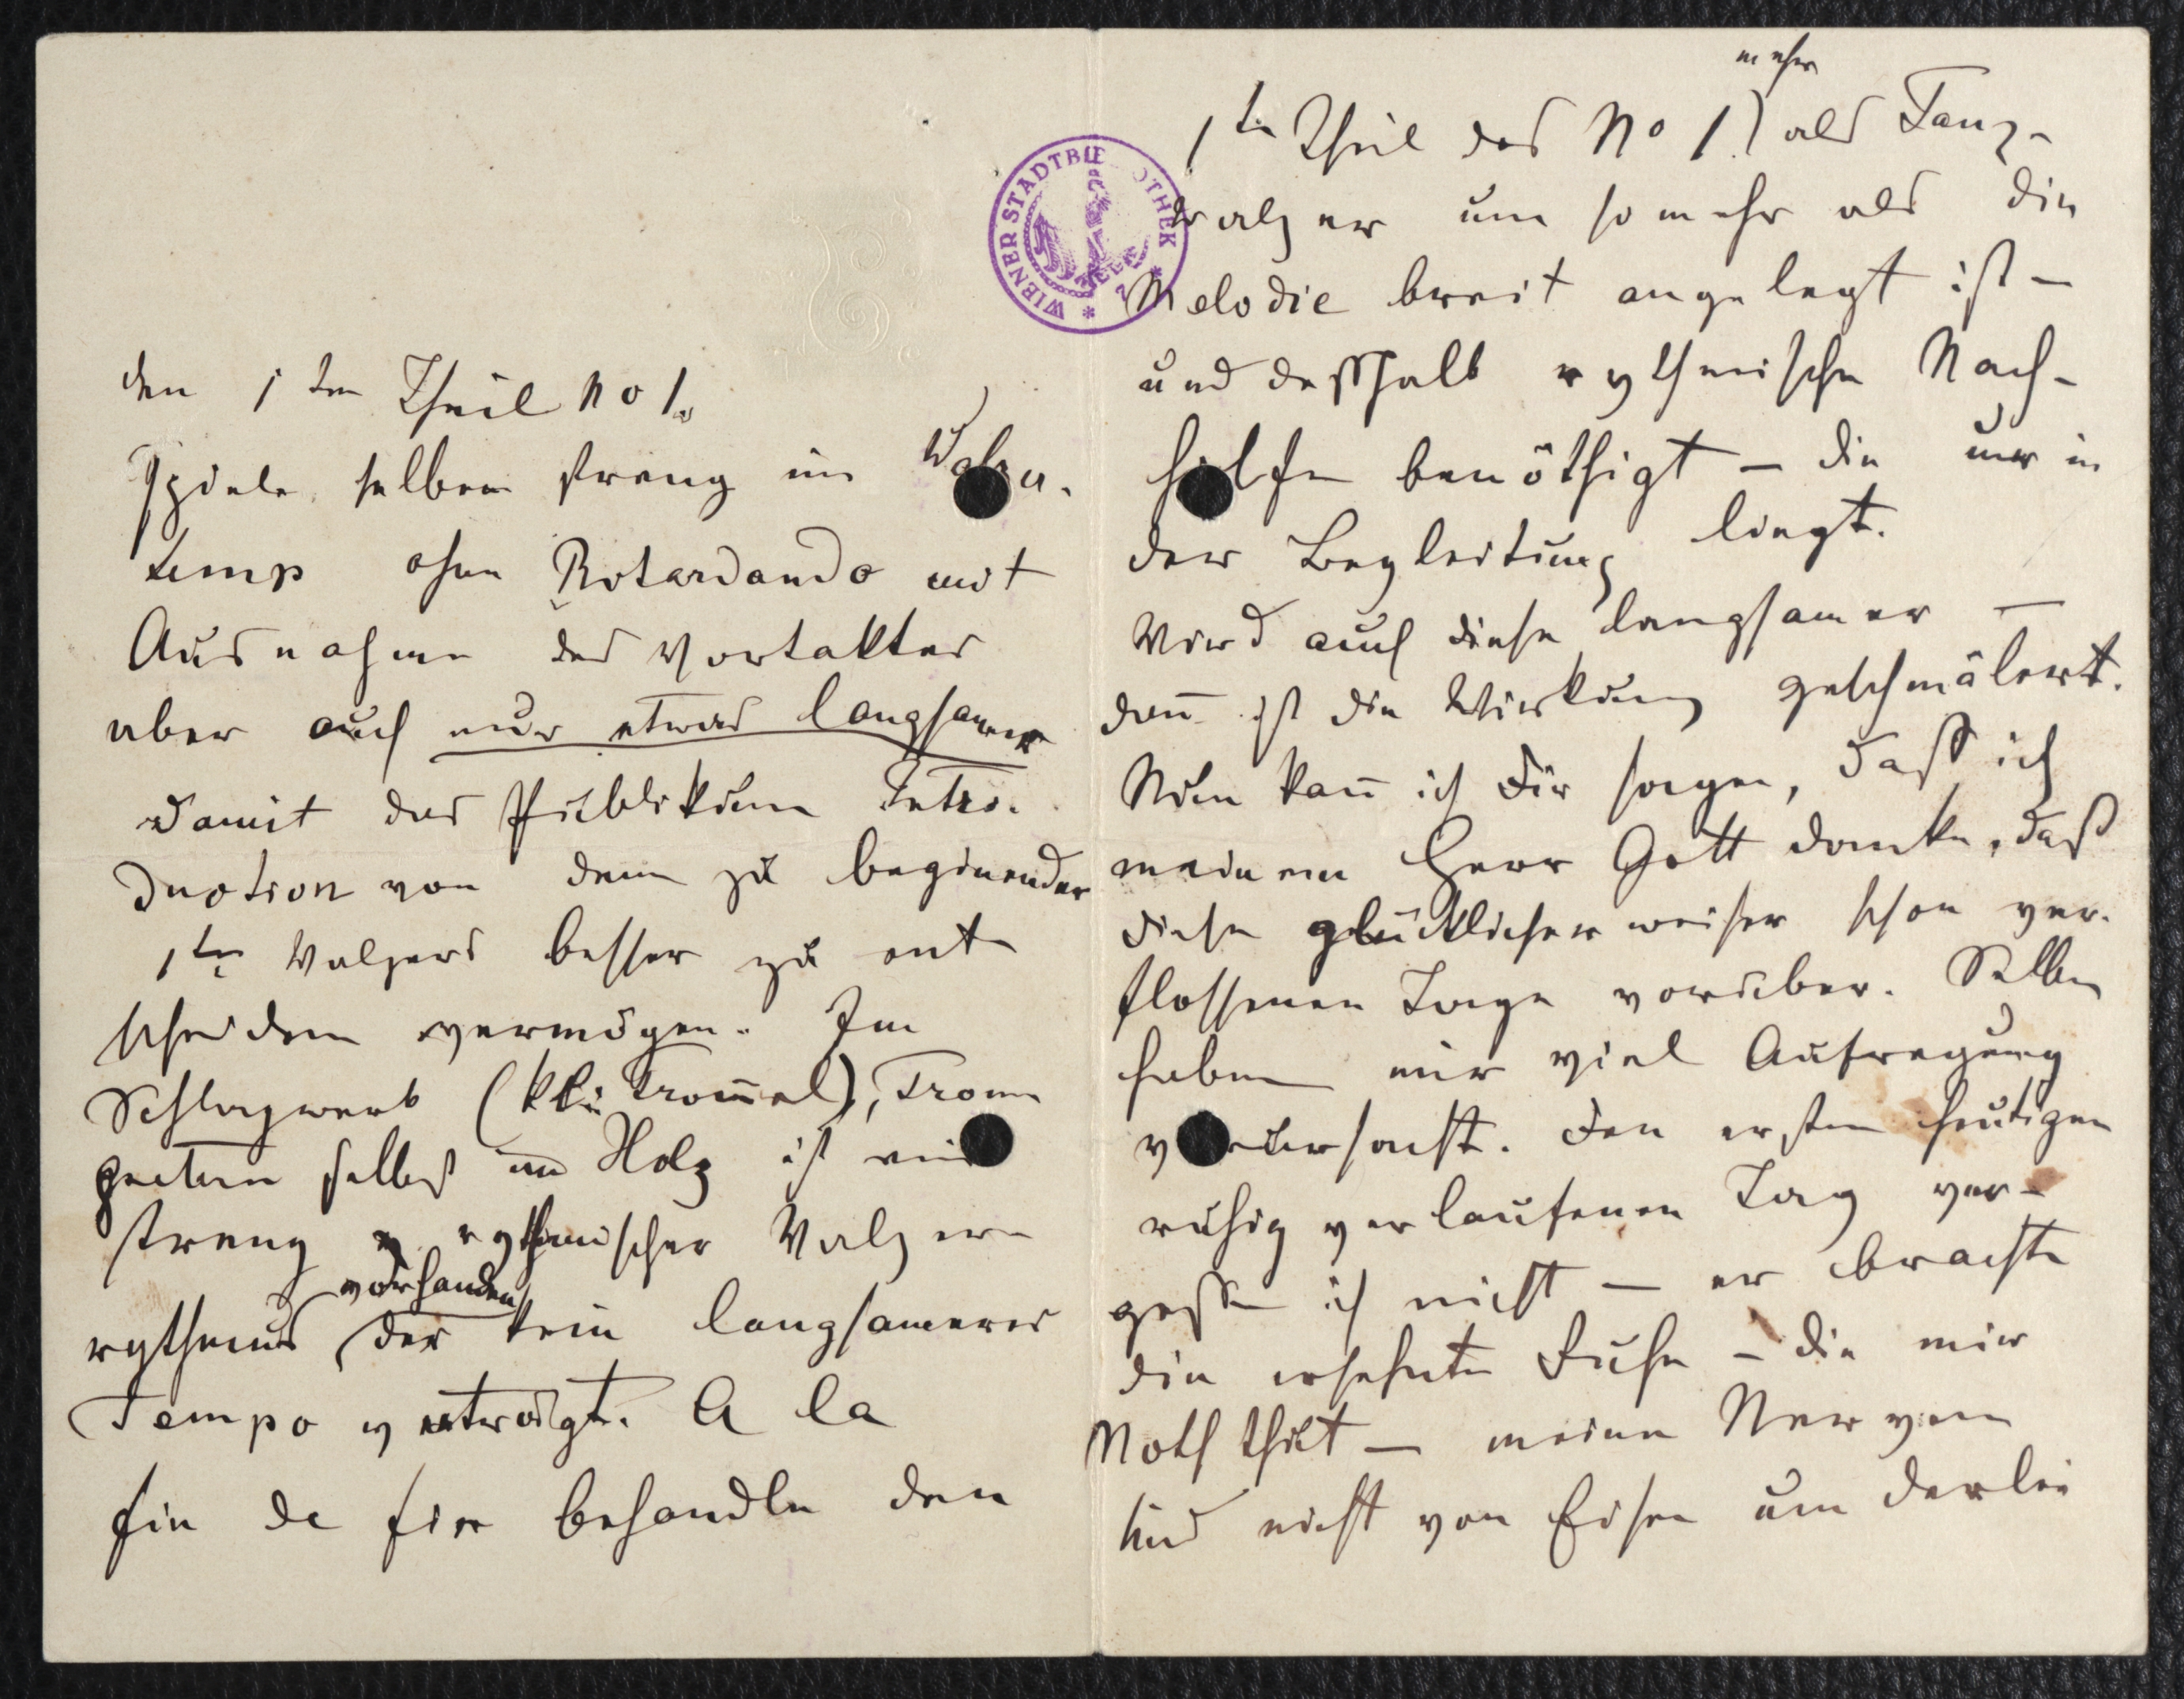 den 1ten Theil No 1.
Spiele selben streng im Walzer-
temp ohne Ritardando mit
Ausnahme des Vortaktes
aber auch nur etwas langsamer
damit das Publikum Intro-
duction von dem zu beginender
1ten Walzers besser zu ent
scheiden vermögen. Im
Schlagwerk (kle Trom̅el), Trom
peten selbst im Holz ist ein
streng rythmischer Walzer
vorhanden
rythmus der kein langsameres
Tempo verträgt. A la
fin de fin behandle den
mehr
1te Theil des No 1) als Tanz-
walzer um so mehr als die
Melodie breit angelegt ist –
und desshalb rythmische Nach-
hilfe benöthigt – die nur in
der Begleitung liegt.
Wird auch diese langsamer –
dan̅ ist die Wirkung geschmälert.
Nun kan̅ ich Dir sagen, daß ich
meinem Herr Gott danke, daß
diese glücklicher weiser schon ver-
flossenen Tage vorüber. Selbe
haben mir viel Aufregung
verursacht. Den ersten heutigen
ruhig verlaufenen Tag ver-
gesse ich nicht – er brachte
die ersehnte Ruhe – die mir
Noth thut – meine Nerven
sind nicht von Eisen um derlei
WIENER STADTBIBLIOTHEK